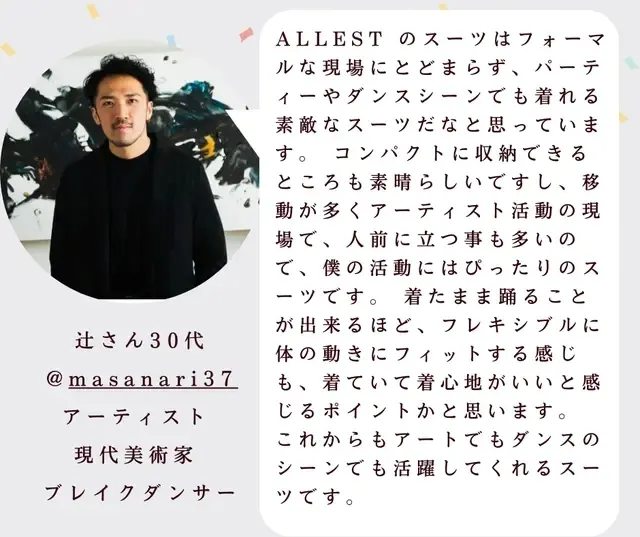 ALLEST のスーツはフォーマ
ルな現場にとどまらず、パーテ
ィーやダンスシーンでも着れる
素敵なスーツだなと思っていま
す。 コンパクトに収納できる
ところも素晴らしいですし、移
動が多くアーティスト活動の現
場で、人前に立つ事も多いの
で、僕の活動にはぴったりのス
ーツです。 着たまま踊ること
が出来るほど、フレキシブルに
体の動きにフィットする感じ
も、着ていて着心地がいいと感
じるポイントかと思います。
これからもアートでもダンスの
シーンでも活躍してくれるスー
ツです。
辻さん30代
@masanari37
アーティスト
現代美術家
ブレイクダンサー